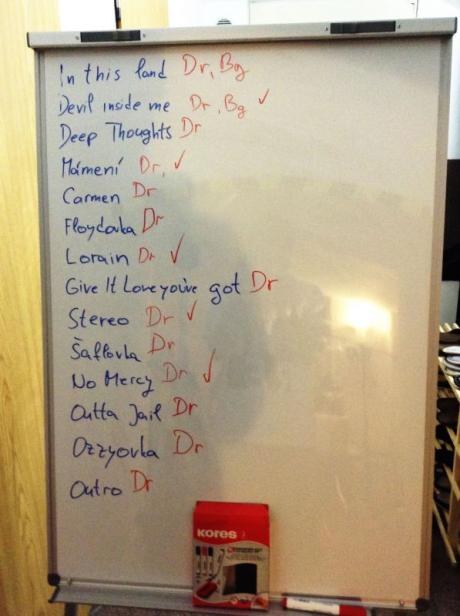 In this land Dr, Bg
Devil inside me Dr, Bg ✓
Deep Thoughts Dr
Mámení Dr, ✓
Carmen Dr
Floydovka Dr
Lorain Dr ✓
Give It Love you've got Dr
Stereo Dr ✓
Šaflovka Dr
No Mercy Dr ✓
Outta Jail Dr
Ozzyovka Dr
Outro Dr
KORES